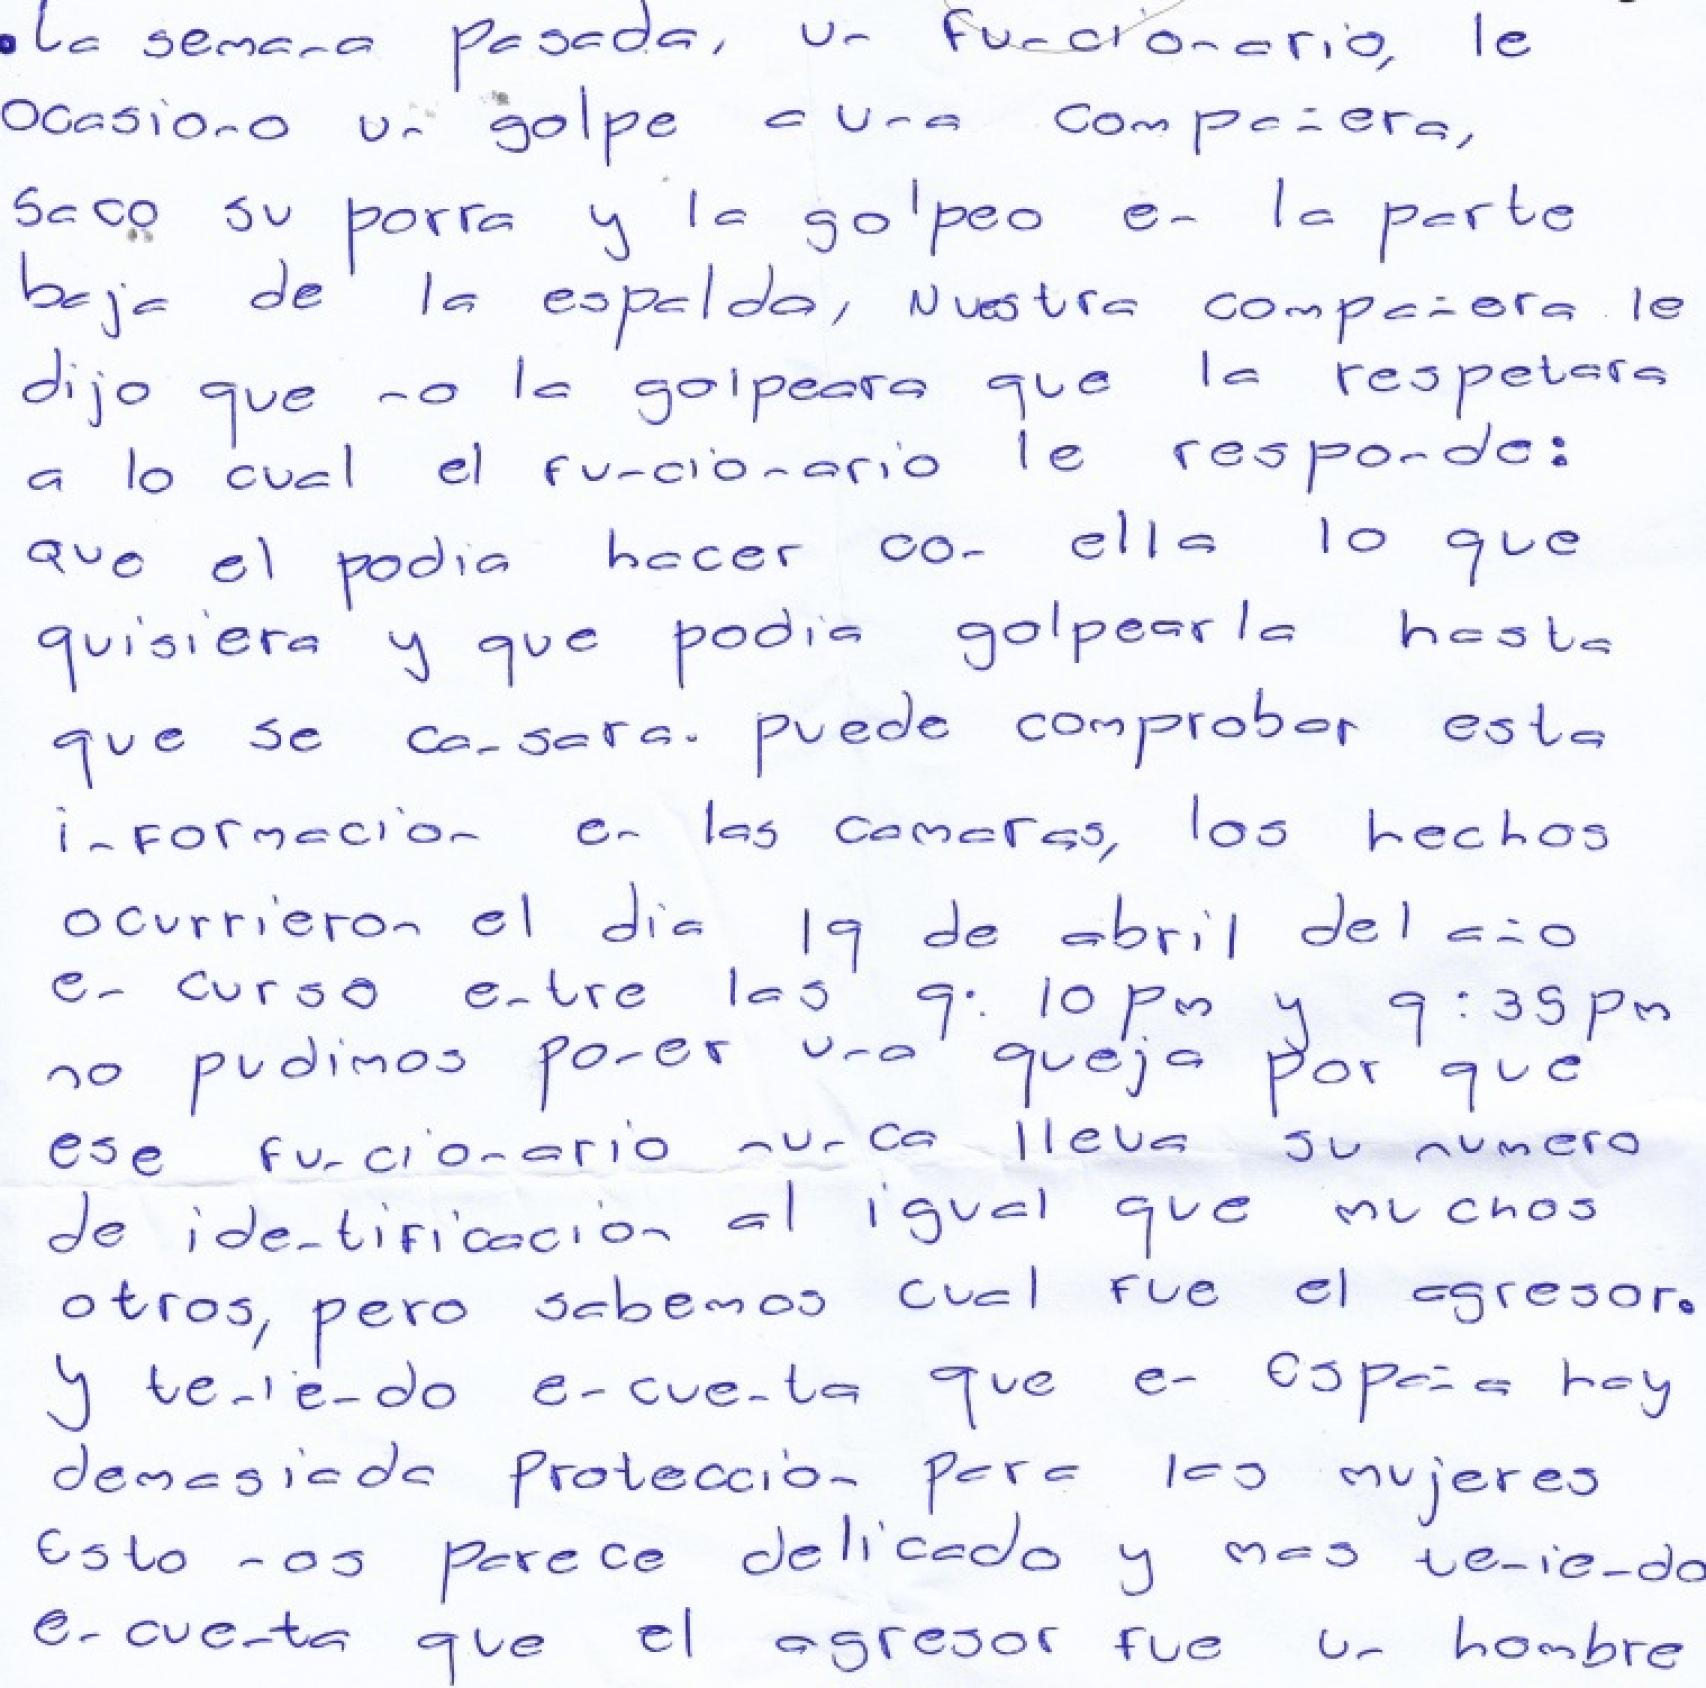 .La semana pasada, un funcionario, le
ocasiono un golpe a una compañera,
Saco su porra y la golpeo en la parte
baja de la espalda, Nuestra compañera le
dijo que no la golpeara que la respetara
a lo cual el funcionario le responde:
que el podia hacer con ella lo que
quisiera y que podia golpearla hasta
que se cansara. puede comprobar esta
informacion en las camaras, los hechos
ocurrieron el dia 19 de abril del año
en curso entre las 9:10pm y 9:35pm
no pudimos poner una queja por que
ese funcionario nunca lleva su numero
de identificacion al igual que muchos
otros, pero sabemos cual fue el agresor.
y teniendo encuenta que en España hay
demasiada Proteccion para las mujeres
Esto nos parece delicado y mas teniendo
encuenta que el agresor fue un hombre